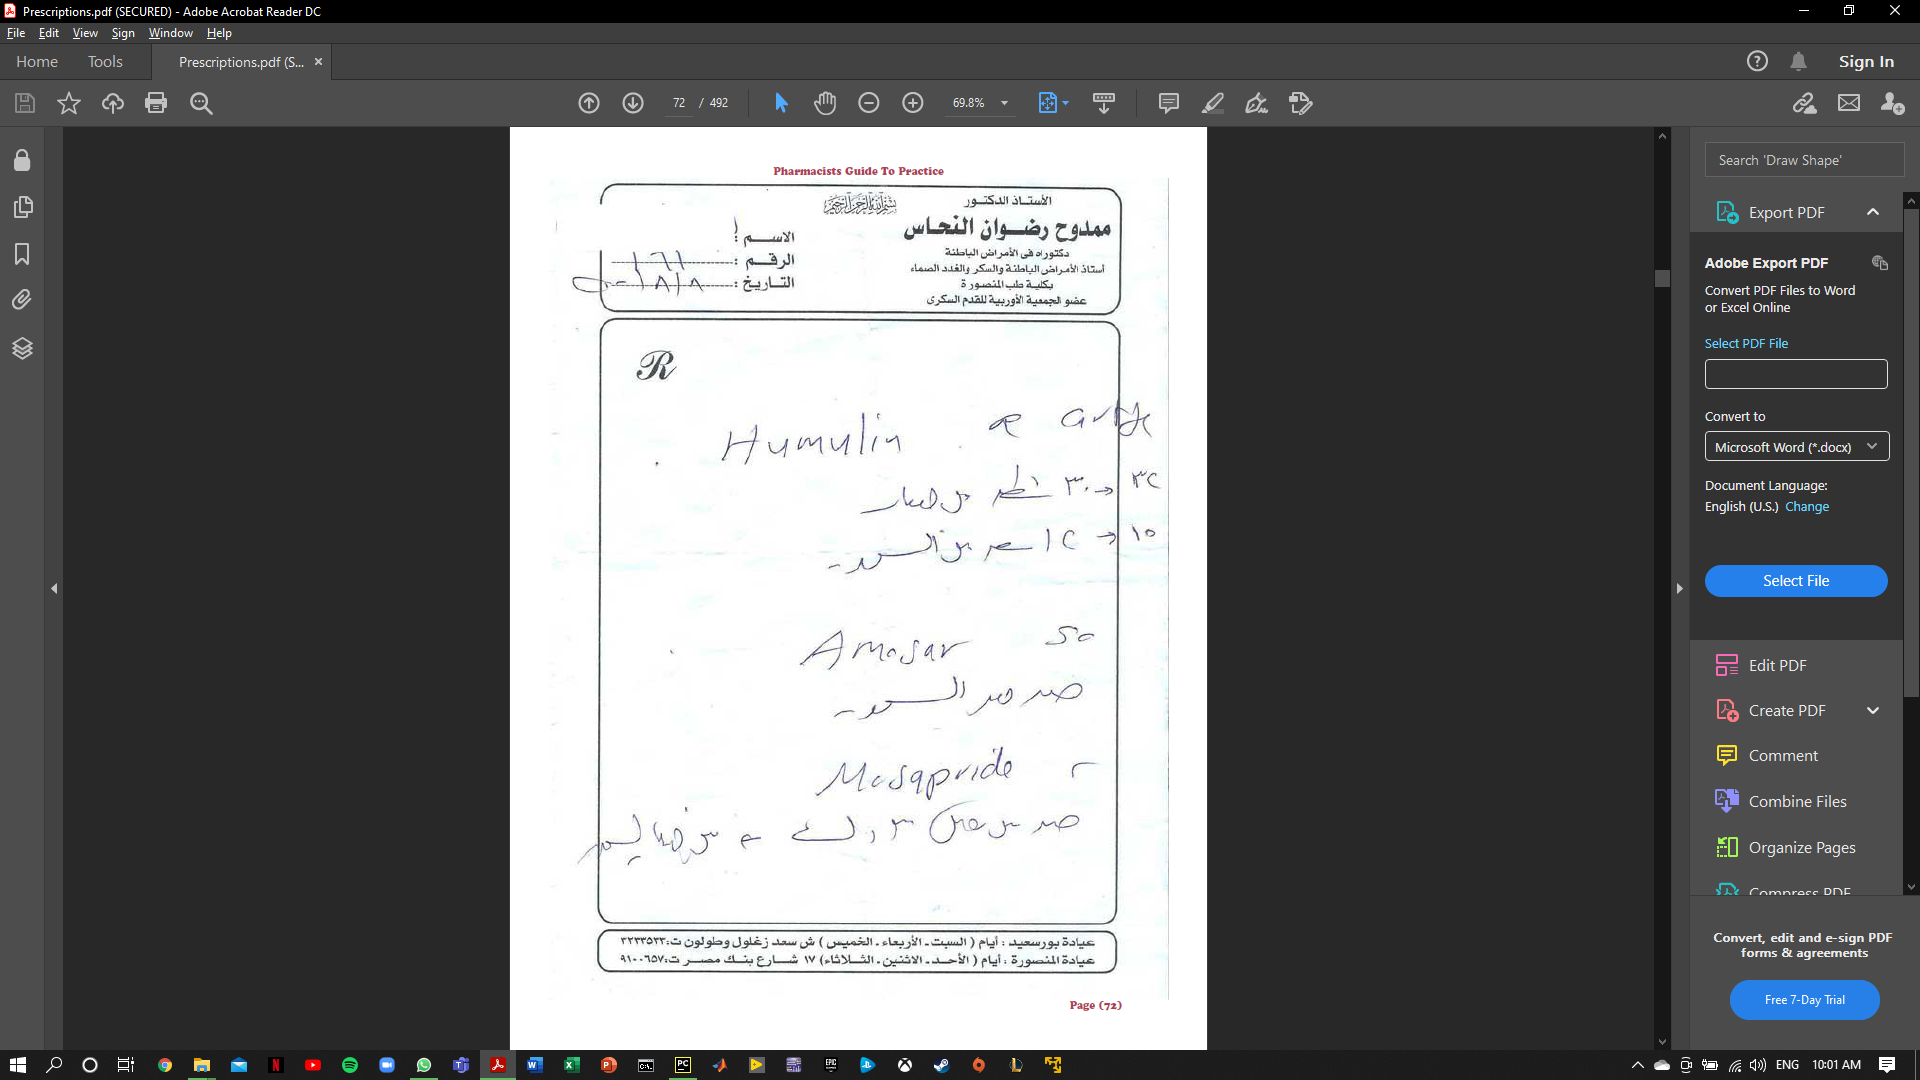 Prescriptions.pdf (SECURED) - Adobe Acrobat Reader DC
File Edit View Sign Window Help
Home Tools Prescriptions.pdf (S... ×
Sign In
72 / 492
69.8%
Pharmacists Guide To Practice
بسم الله الرحمن الرحيم
الأستاذ الدكتور
ممدوح رضوان النحاس
دكتوراه فى الأمراض الباطنة
أستاذ الأمراض الباطنة والسكر والغدد الصماء
بكلية طب المنصورة
عضو الجمعية الأوربية للقدم السكرى
الاسم :
الرقم :
التاريخ :
R
Humulin
٣٢ → ٣٠
١٥ → ١٢
Amosar 50
Mosapride
عيادة بورسعيد : أيام ( السبت - الأربعاء - الخميس ) ش سعد زغلول وطولون ت: ٣٢٣٣٥٣٣
عيادة المنصورة : أيام ( الأحد - الاثنين - الثلاثاء ) ١٧ شارع بنك مصر ت: ٩١٠٠٦٥٧
Page (72)
Search 'Draw Shape'
Export PDF
Adobe Export PDF
Convert PDF Files to Word
or Excel Online
Select PDF File
Convert to
Microsoft Word (*.docx)
Document Language:
English (U.S.) Change
Select File
Edit PDF
Create PDF
Comment
Combine Files
Organize Pages
Compress PDF
Convert, edit and e-sign PDF
forms & agreements
Free 7-Day Trial
ENG 10:01 AM